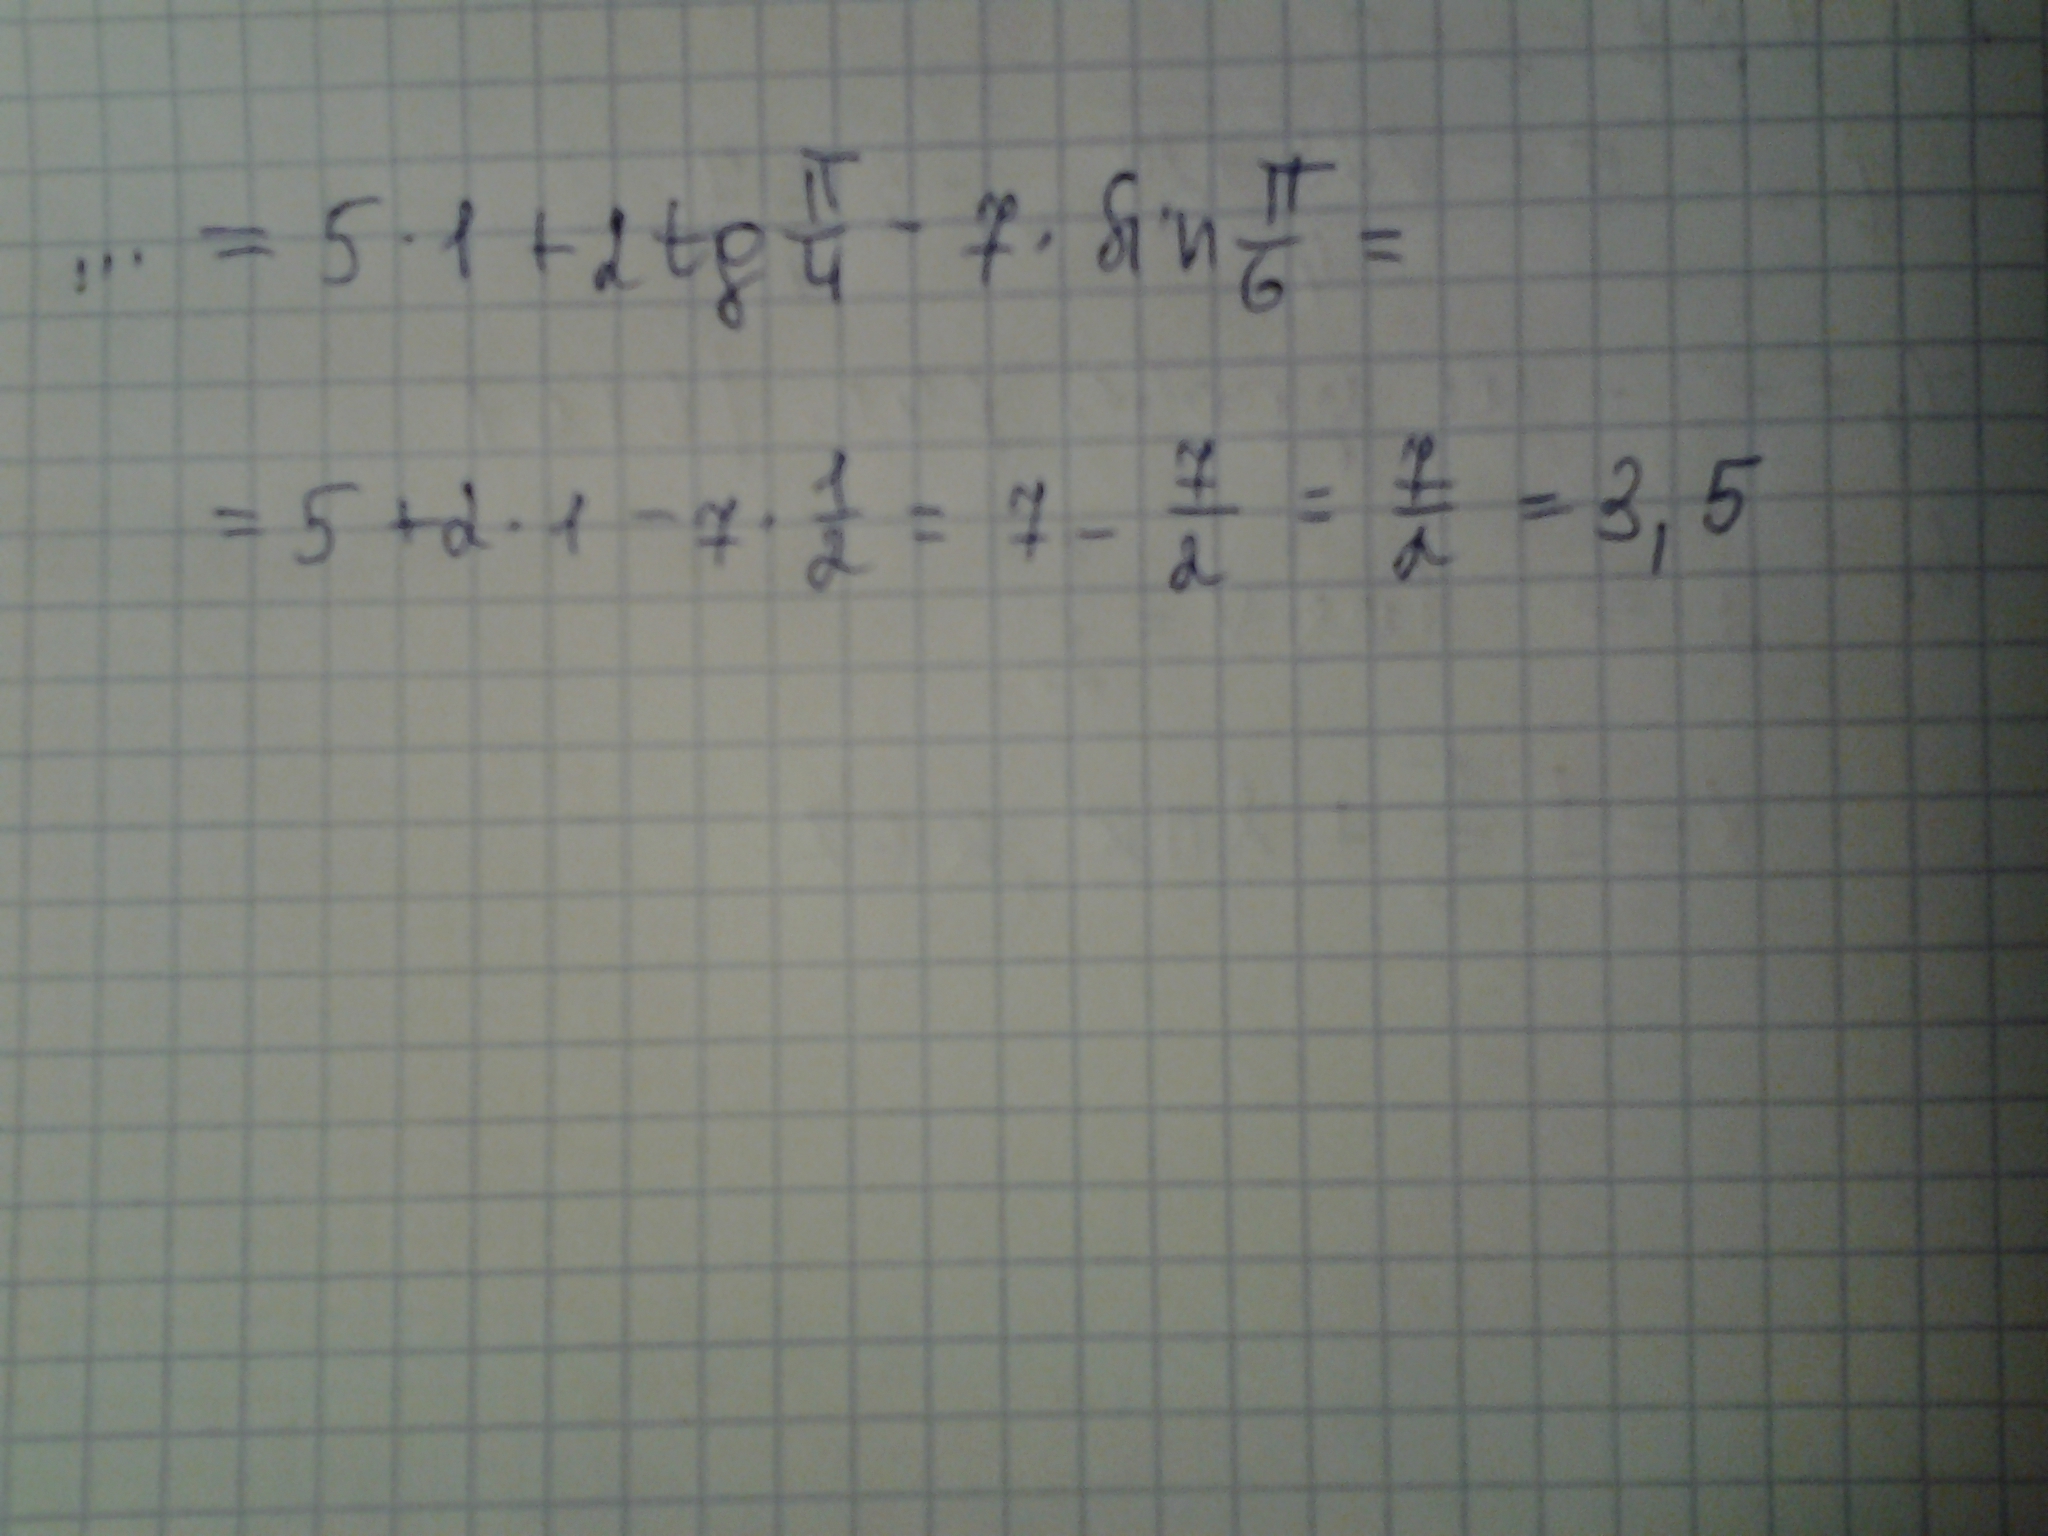 ... = 5 · 1 + 2 tg π/4 - 7 · sin π/6 =
= 5 + 2 · 1 - 7 · 1/2 = 7 - 7/2 = 7/2 = 3,5